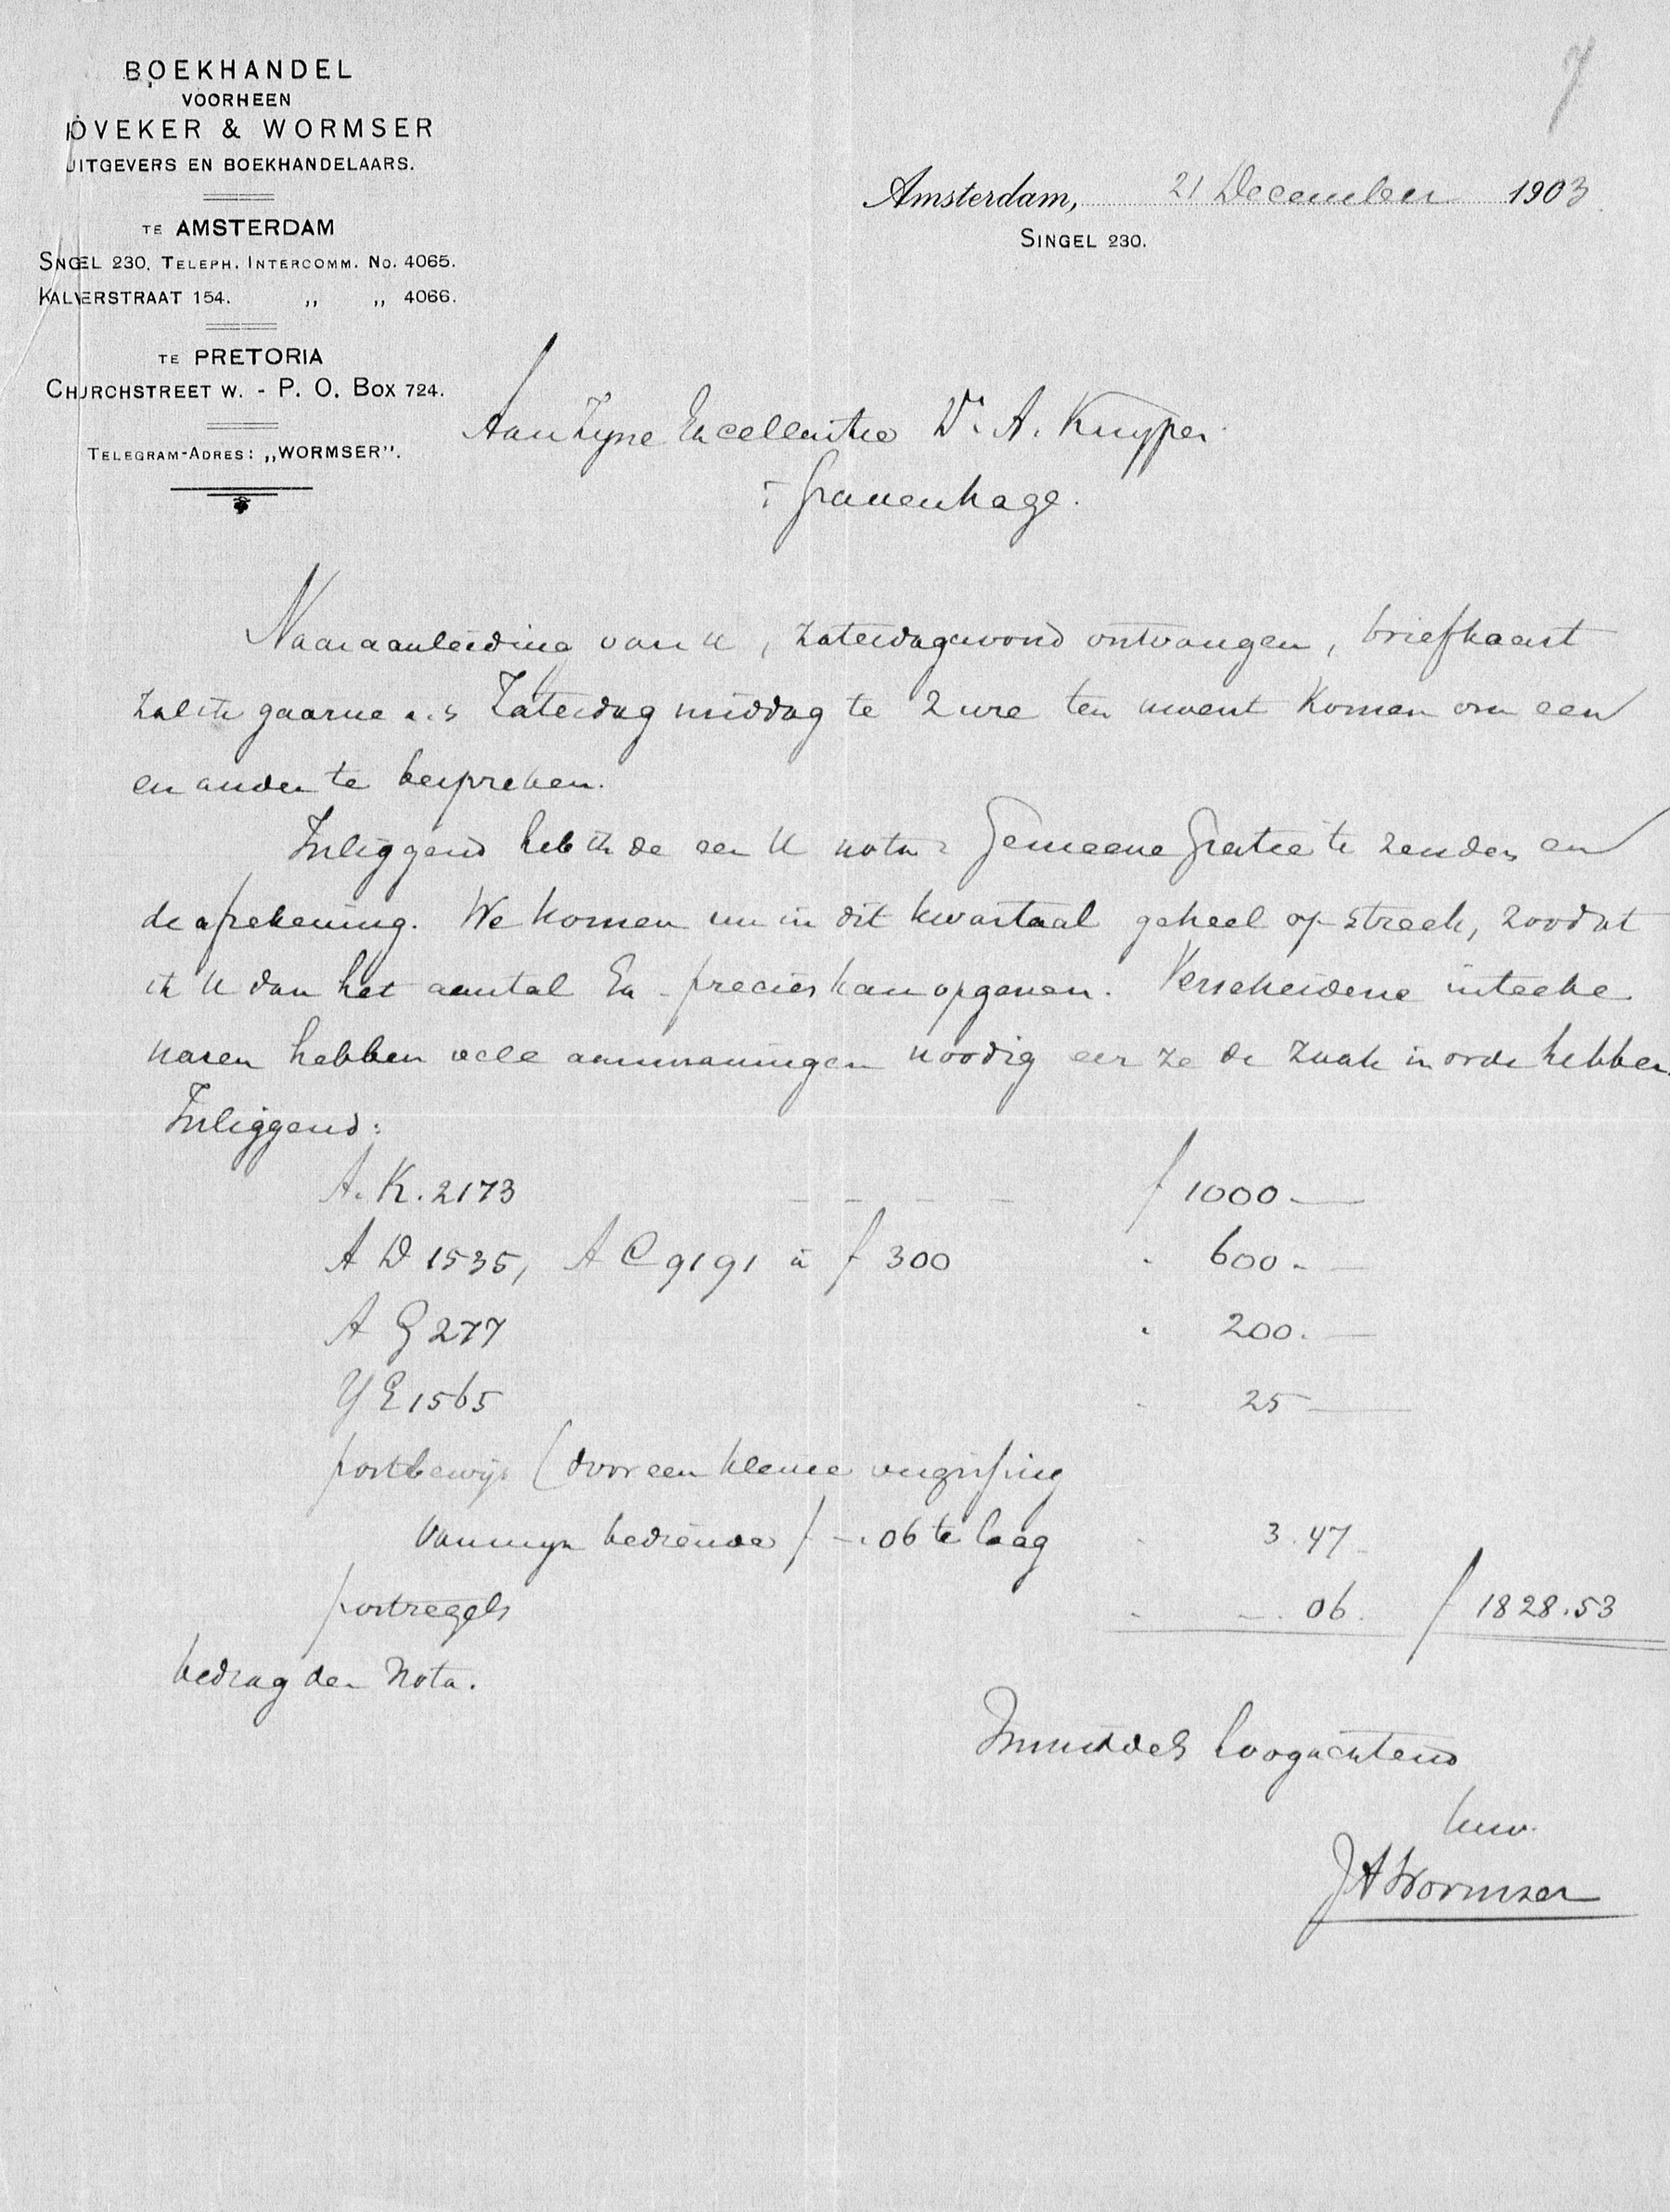 BOEKHANDEL
VOORHEEN
HÖVEKER & WORMSER
UITGEVERS EN BOEKHANDELAARS.
TE AMSTERDAM
SINGEL 230. TELEPH. INTERCOMM. NO. 4065.
KALVERSTRAAT 154. ,, ,, 4066.
TE PRETORIA
CHURCHSTREET W. - P. O. BOX 724.
TELEGRAM-ADRES: ,,WORMSER".
7
Amsterdam, 21 December 1903
SINGEL 230.
Aan Zyne Excellentie Dr. A. Kuyper
's Gravenhage.
Naar aanleiding van u, Zaterdagavond ontvangen, briefkaart
zal ik gaarne a.s Zaterdag middag te 2 ure ten uwent komen om een
en ander te bespreken.
Inliggend heb ik de eer U nota Gemeene Gratie te zenden en
de afrekening. We komen nu in dit kwartaal geheel op streek, zoodat
ik U dan het aantal Ex. precies kan opgeven. Verscheidene inteeke
naren hebben vele aanmaningen noodig eer ze de zaak in orde hebben.
Inliggend:
A. K. 2173 - - - - f 1000.—
A D 1535, A C 9191 à f 300 600.—
A G 277 200.—
Y E 1565 25 —
postbewijs (door een kleine vergissing
van mijn bediende f -.06 te laag 3.47
postzegels —.06. f 1828.53
bedrag der Nota.
Inmiddels hoogachtend
Uw.
JA Wormser